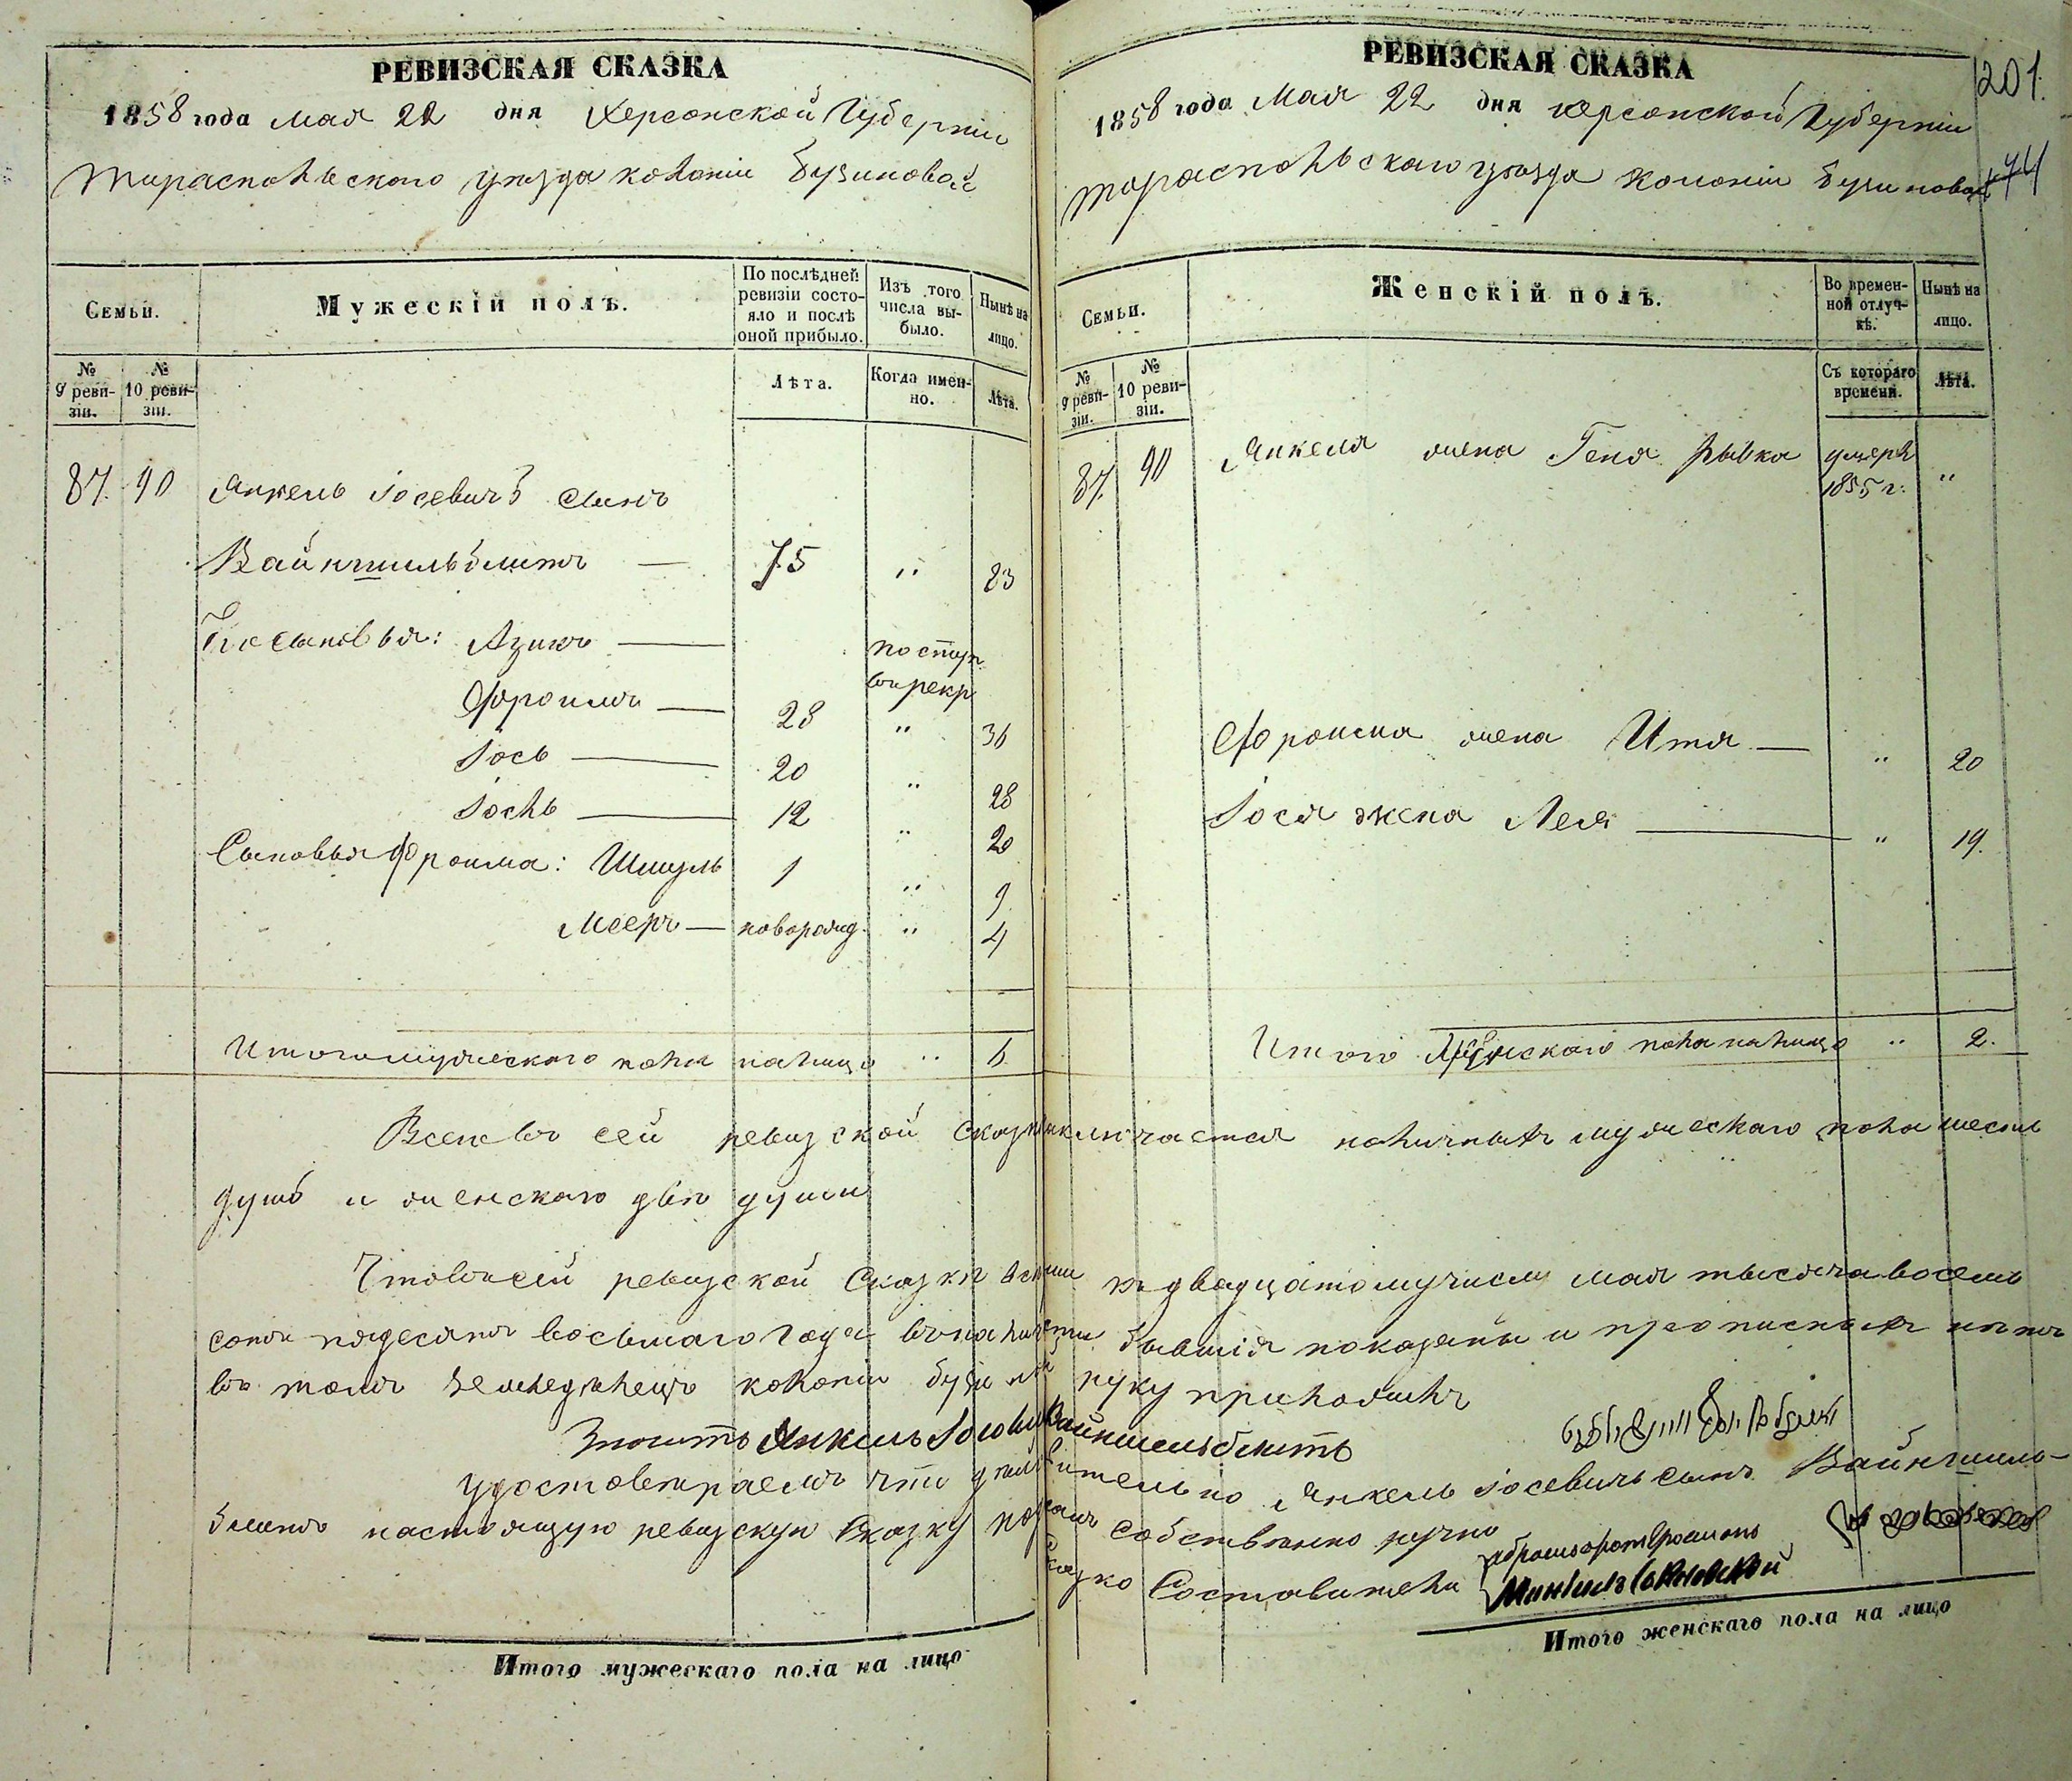 РЕВИЗСКАЯ СКАЗКА
1858 года мая 22 дня Херсонской Губерніи
Тираспольского уезда колоніи Бузиновой
Семьи.
Мужескій полъ.
По послѣдней ревизіи состо-
яло и послѣ
оной прибыло.
Изъ того
числа вы-
было.
Нынѣ на
лицо.
№
9 реви-
зіи.
№
10 реви-
зіи.
Лѣта.
Когда имен-
но.
Лѣта.
87. 90 Янкель Іосевичъ сынъ
Вайншильблитъ — 75 " 83
Его сыновья: Азикъ — поступ.
въ рекр
Фроимъ — 28 " 36
Іось — 20 " 28
Іосль — 12 " 20
Сыновья Фроима: Шмуль 1 " 9
Мееръ — новорожд. " 4
Итого мужескаго пола налицо " 6.
РЕВИЗСКАЯ СКАЗКА
201.
1858 года Мая 22 дня Херсонской Губерніи
Тираспольскаго уѣзда Колоніи Бузиновой
74
Семьи.
Женскій полъ.
Во времен-
ной отлуч-
кѣ.
Нынѣ на
лицо.
№
9 реви-
зіи.
№
10 реви-
зіи.
Съ котораго
времени.
Лѣта.
87. 90 Янкеля жена Геня Рывка умерла
1855 г. "
Фроима жена Итя — " 20
Іося жена Лея — " 19.
Итого Женскаго пола налицо " 2.
Всего въ сей ревизской сказкѣ заключается наличныхъ мужескаго пола шесть
душъ и женскаго двѣ души
Что въ сей ревизской Сказкѣ всѣ къ двадцатому числу мая тысяча восемь
сотъ пядесятъ восьмаго года въ наличности бывшія показаны и прописныхъ нѣтъ
въ томъ земледѣлецъ колоніи Бузиной руку приложилъ
Янкель Іосевичъ Вайншельблитъ
Удостовѣряемъ что действительно Янкель Іосевичъ сынъ Вайншиль-
блитъ настоящую ревизскую Сказку подалъ собственно ручно
Сказко Составители
Итого мужескаго пола на лицо
Итого женскаго пола на лицо